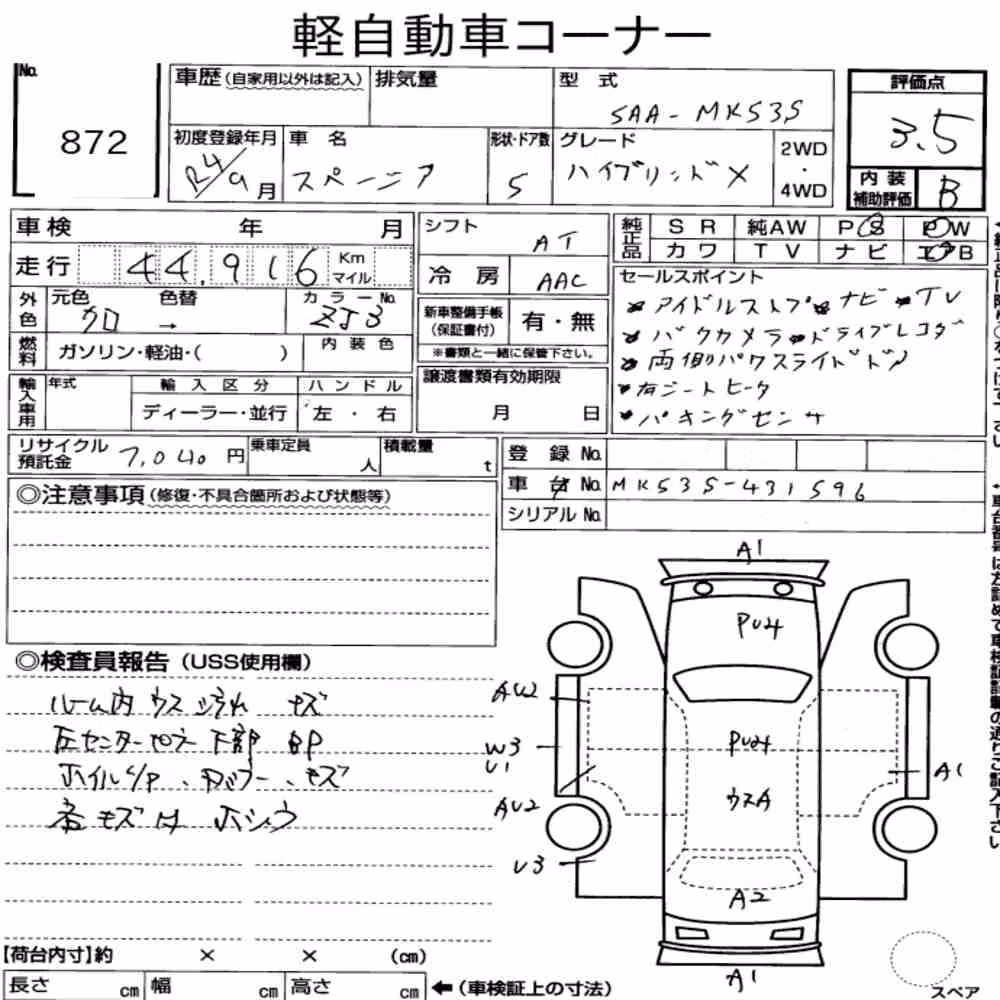 軽自動車コーナー
No.
872
車歴（自家用以外は記入）
排気量
型式
5AA-MK53S
初度登録年月
R4/9月
車名
スペーシア
形状・ドア数
5
グレード
ハイブリッドX
2WD
・
4WD
評価点
3.5
内装
補助評価
B
車検 年 月
走行 44,916 Km マイル
外色
元色 色替
クロ →
カラーNo.
ZJ3
燃料
ガソリン・軽油・( )
内装色
輸入車用
年式
輸入区分
ディーラー・並行
ハンドル
左・右
シフト
AT
冷房
AAC
新車整備手帳
（保証書付）
有・無
※書類と一緒に保管下さい。
譲渡書類有効期限
月 日
純正品
SR 純AW PS PW
カワ TV ナビ エアB
セールスポイント
アイドルストプ ナビ TV
バクカメラ ドライブレコダ
両側パワスライドドア
右シートヒータ
パキングセンサ
リサイクル
預託金
7,040円
乗車定員
人
積載量
t
登録No.
車台No. MK53S-431596
シリアルNo.
◎注意事項（修復・不具合箇所および状態等）
◎検査員報告（USS使用欄）
ルーム内 ウス ヨゴレ キズ
左センターピラー下部 BP
ホイルS/P、キズ
各キズ ホシュウ
A1
PU4
AW2
W3
U1
AU2
U3
PU4
ウスA
A1
A2
A1
スペア
【荷台内寸】約 × × （cm）
長さ cm 幅 cm 高さ cm ←（車検証上の寸法）